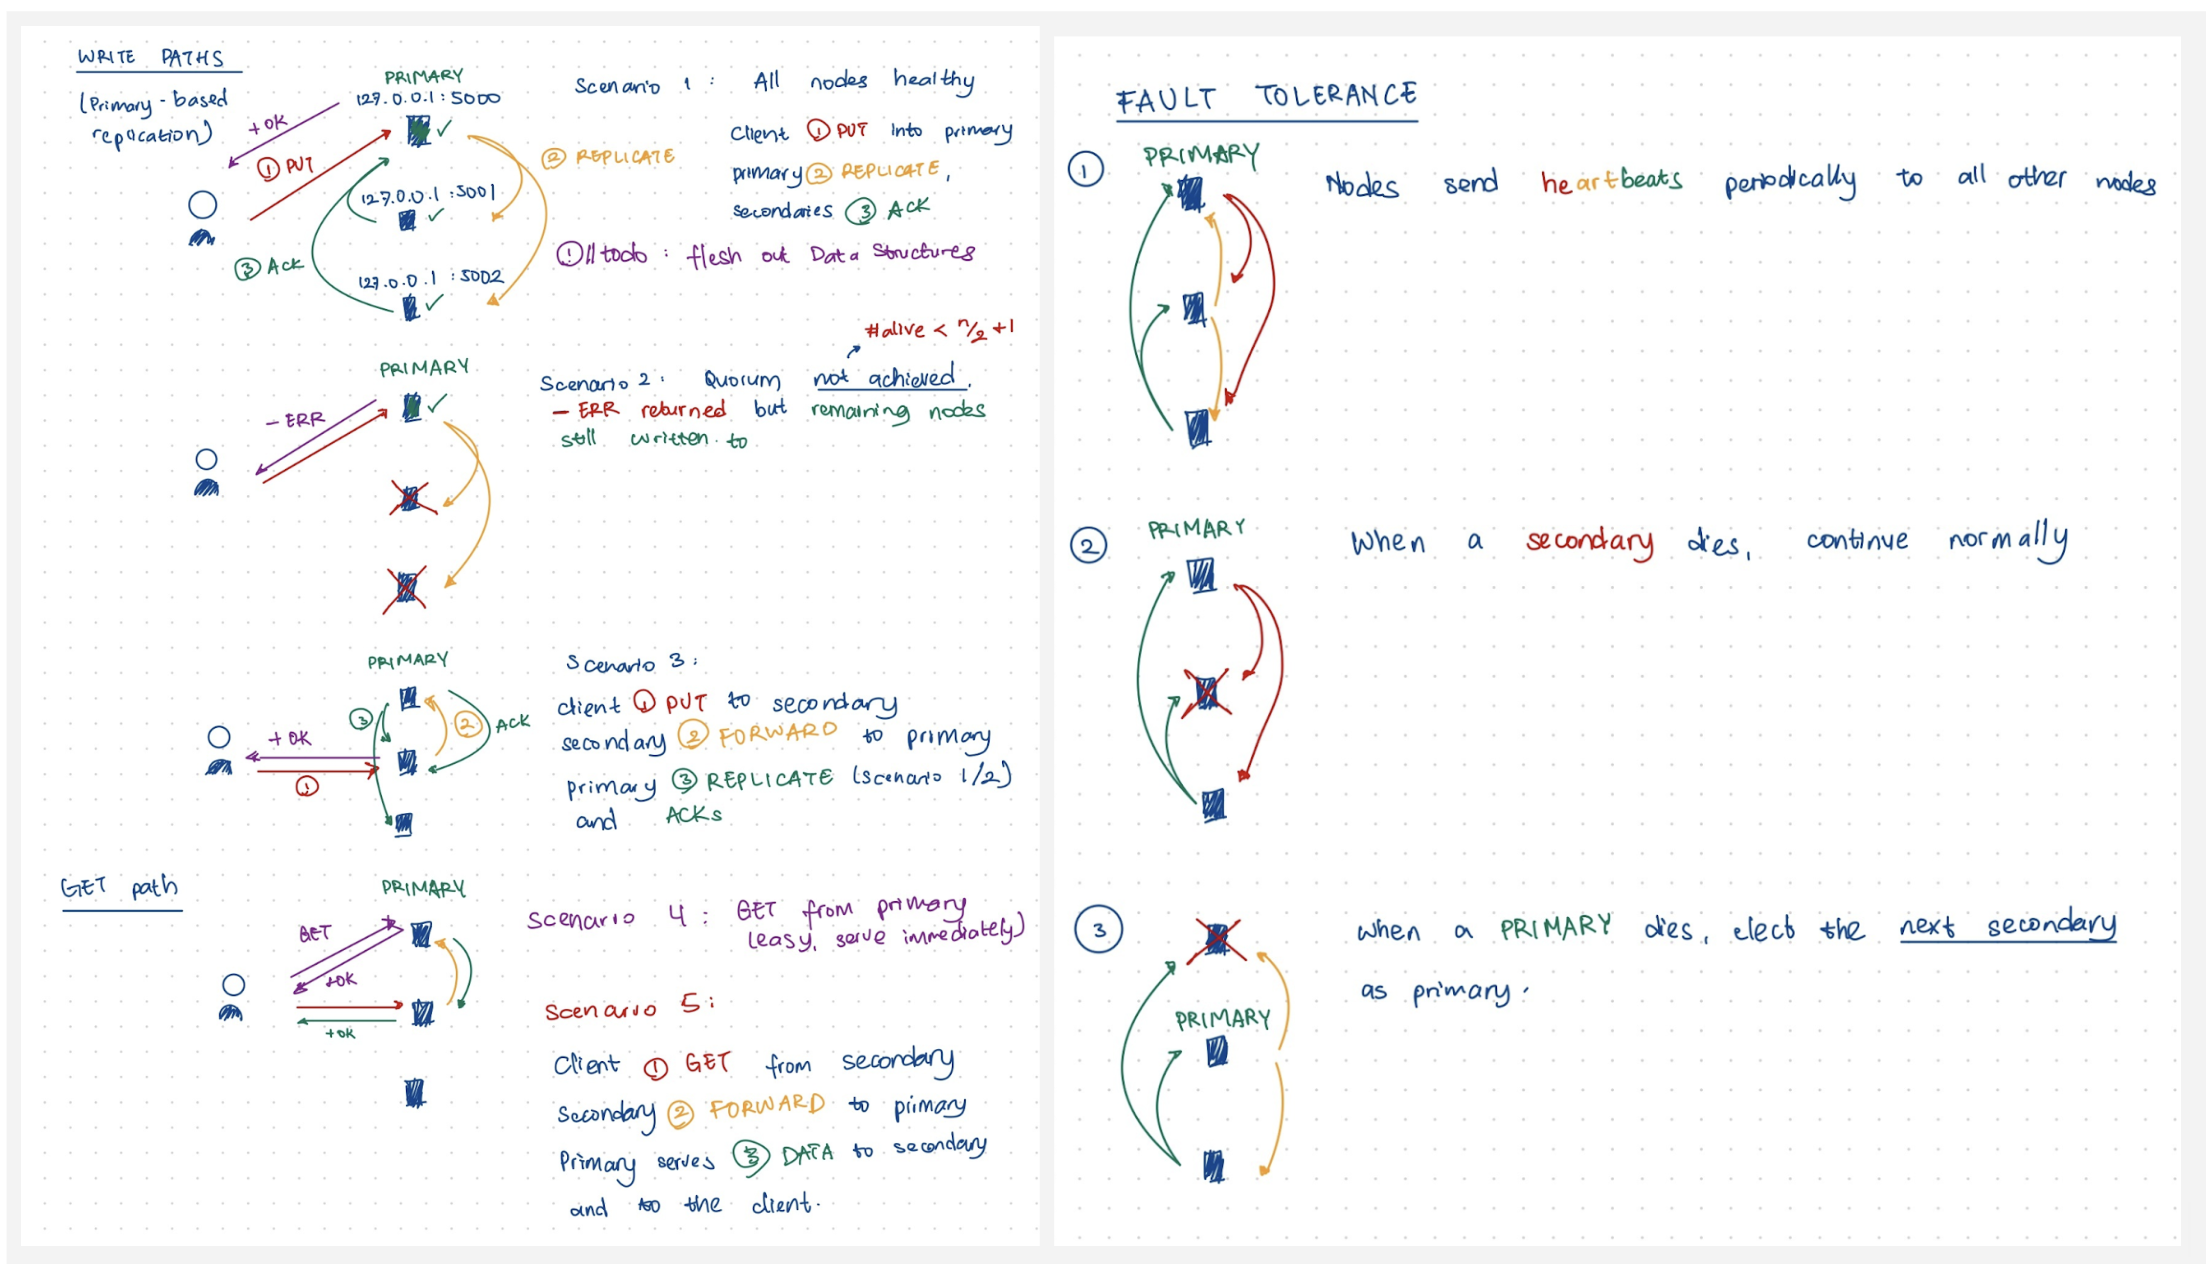 WRITE PATHS
(Primary-based
replication)
PRIMARY
127.0.0.1:5000
+OK
① PUT
② REPLICATE
127.0.0.1:5001
③ Ack
127.0.0.1:5002
Scenario 1: All nodes healthy
Client ① PUT into primary
primary ② REPLICATE,
secondaries ③ ACK
! //todo: flesh out Data Structures
PRIMARY
- ERR
#alive < n/2 +1
Scenario 2: Quorum not achieved.
- ERR returned but remaining nodes
still written to
PRIMARY
③
②
ACK
+ OK
①
Scenario 3:
client ① PUT to secondary
secondary ② FORWARD to primary
primary ③ REPLICATE (scenario 1/2)
and ACKs
GET path
PRIMARY
GET
+OK
+OK
Scenario 4: GET from primary
(easy, serve immediately)
Scenario 5:
Client ① GET from secondary
Secondary ② FORWARD to primary
Primary serves ③ DATA to secondary
and to the client.
FAULT TOLERANCE
①
PRIMARY
Nodes send heartbeats periodically to all other nodes
②
PRIMARY
When a secondary dies, continue normally
③
PRIMARY
when a PRIMARY dies, elect the next secondary
as primary.